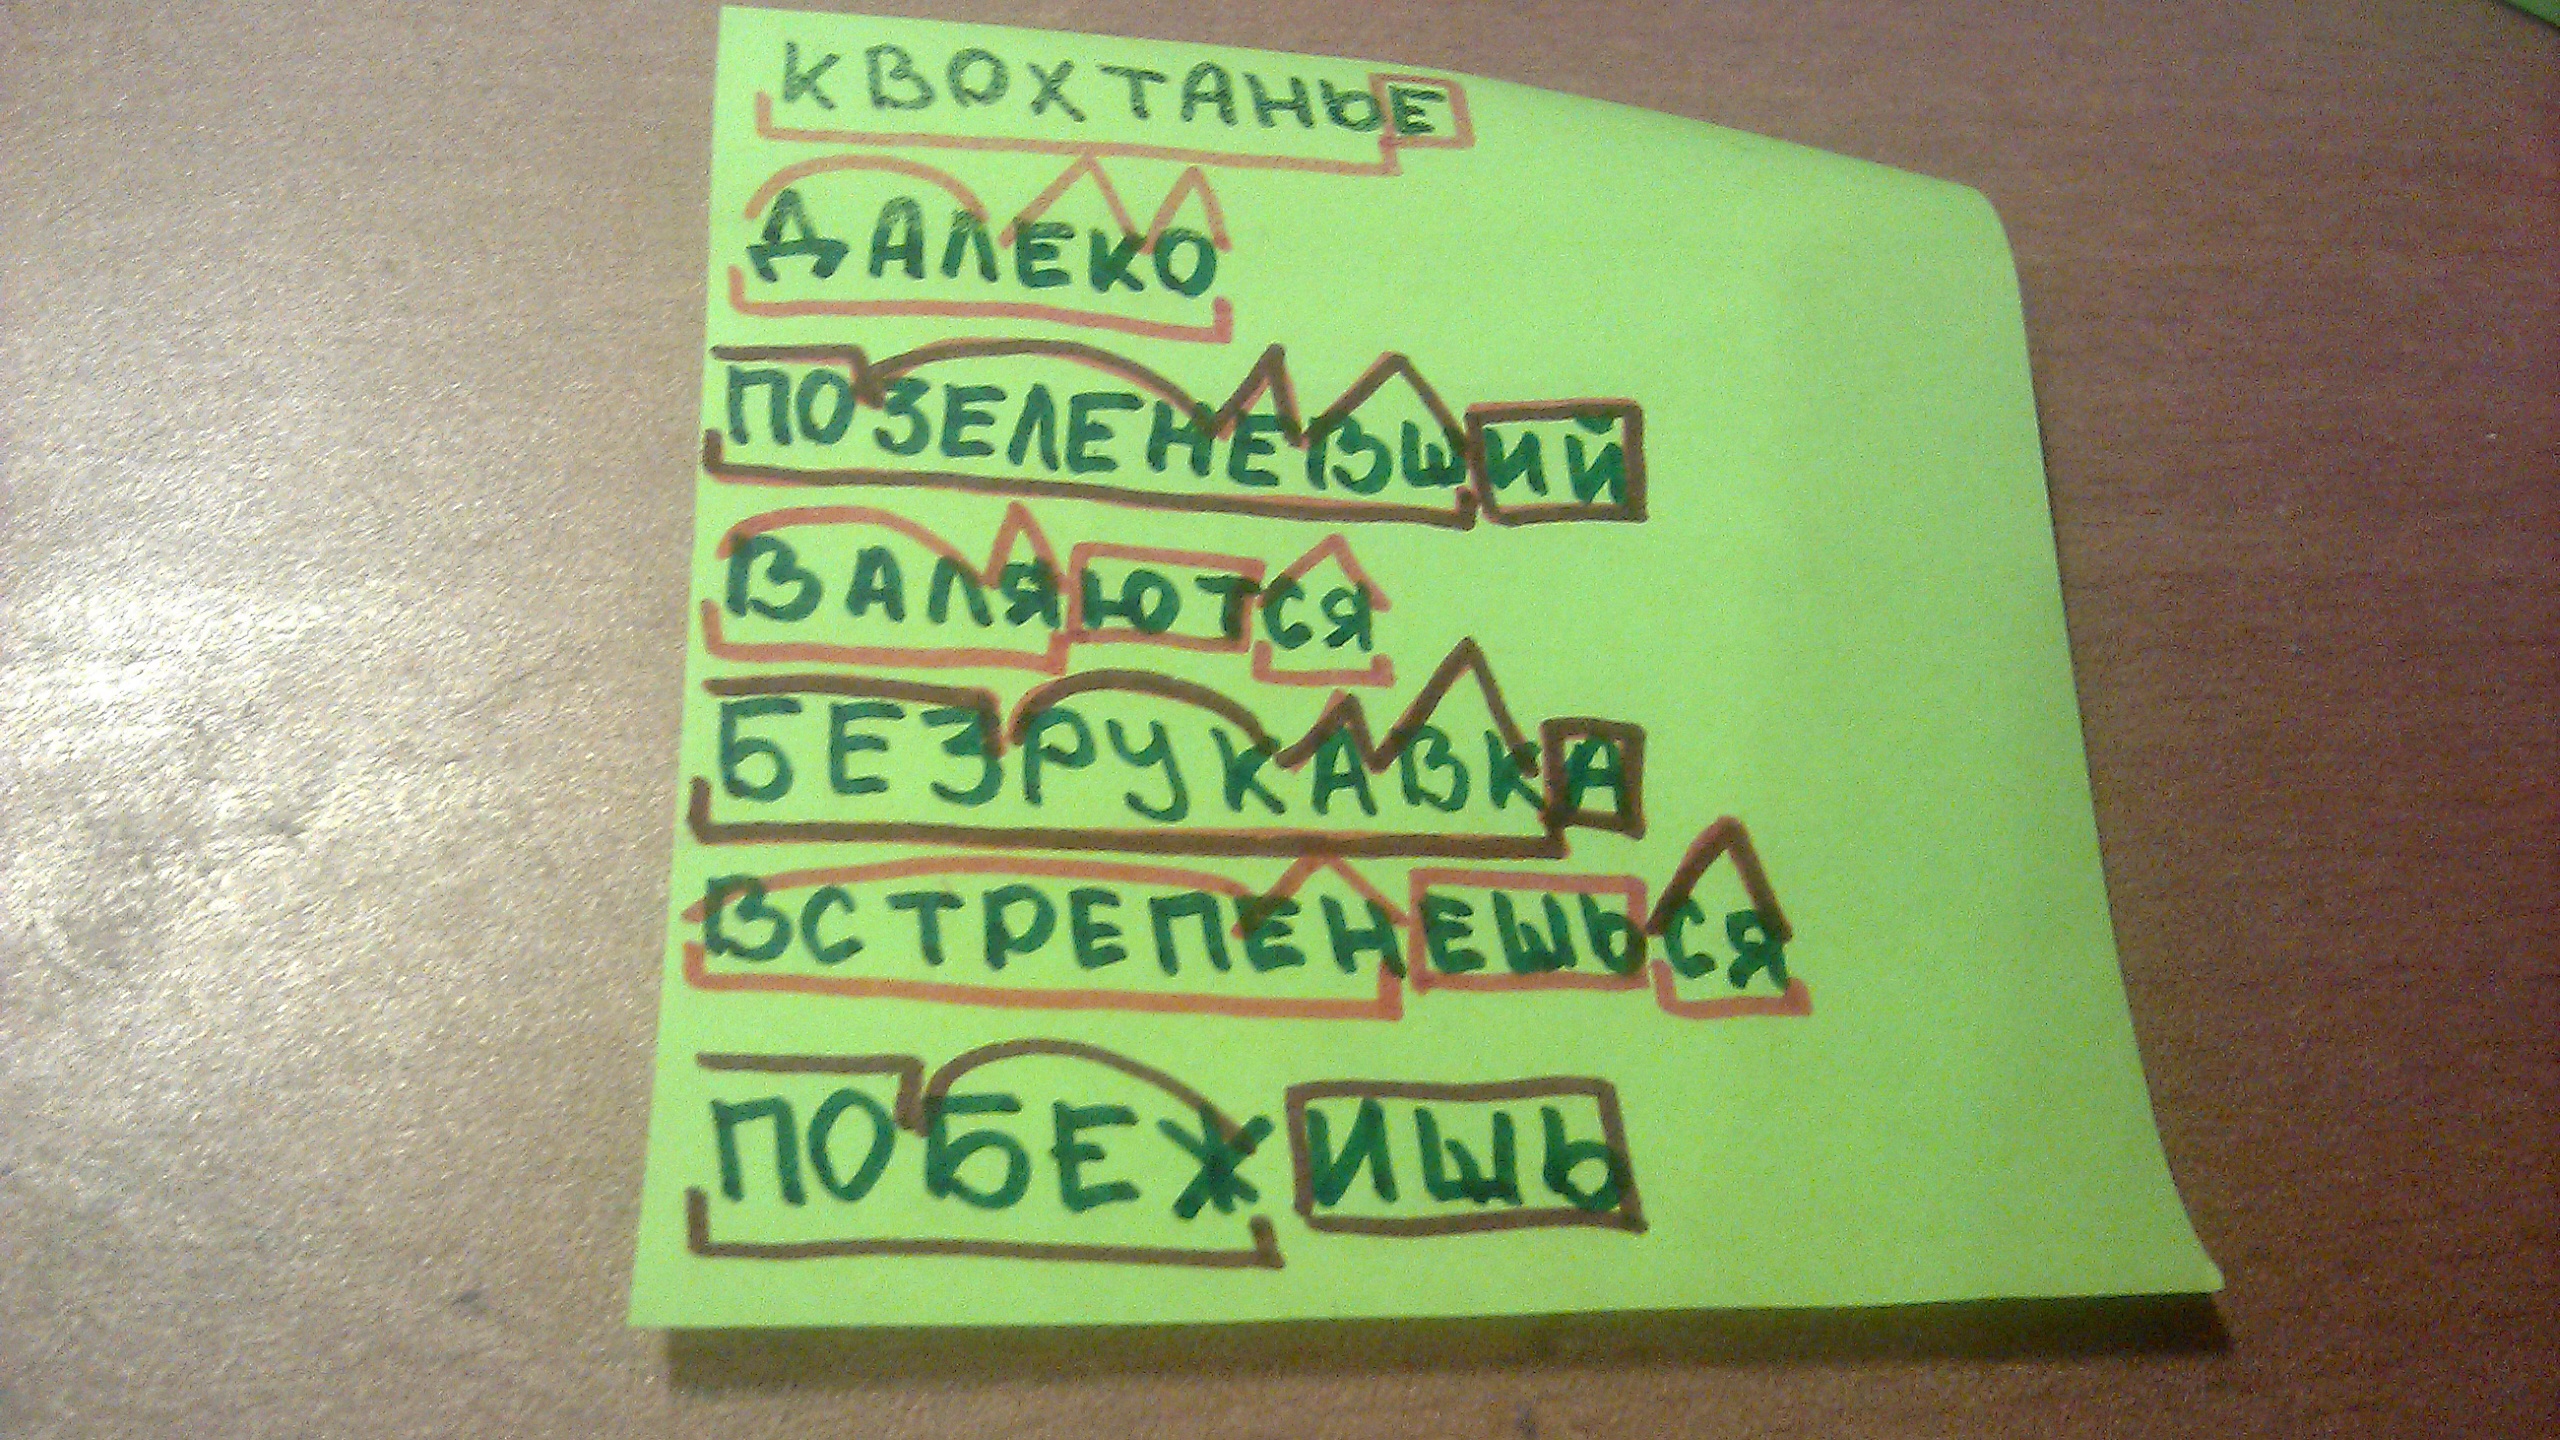 КВОХТАНЬЕ
ДАЛЕКО
ПОЗЕЛЕНЕВШИЙ
ВАЛЯЮТСЯ
БЕЗРУКАВКА
ВСТРЕПЕНЕШЬСЯ
ПОБЕЖИШЬ